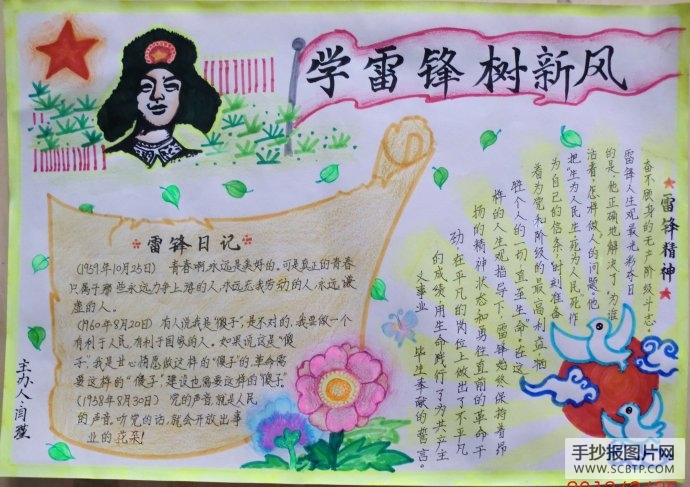 学雷锋树新风
雷锋日记
(1959年10月25日) 青春啊,永远是美好的,可是真正的青春
只属于那些永远力争上游的人,永远忘我劳动的人,永远谦
虚的人。
(1960年8月20日) 有人说我是"傻子",是不对的,我要做一个
有利于人民,有利于国家的人。如果说这是"傻
子",我是甘心情愿做这样的"傻子"的,革命需
要这样的"傻子",建设也需要这样的"傻子"。
(1958年8月30日) 党的声音,就是人民
的声音,听党的话,就会开放出事
业的花朵!
雷锋精神
奋不顾身的无产阶级斗志。
雷锋人生观最光彩夺目
的是:他正确地解决了"为谁
活着,怎样做人的问题"他
把"生为人民生,死为人民死"作
为自己的信条,时刻准备
着为党和阶级的最高利益牺
牲个人的一切,直至生命。在这
样的人生观指导下,雷锋始终保持着昂
扬的精神状态和勇往直前的革命干
劲,在平凡的岗位上做出了不平凡
的成绩,用生命践行了为共产主
义事业 毕生奉献的誓言。
主办人:闫
手抄报图片网
WWW.SCBTP.COM